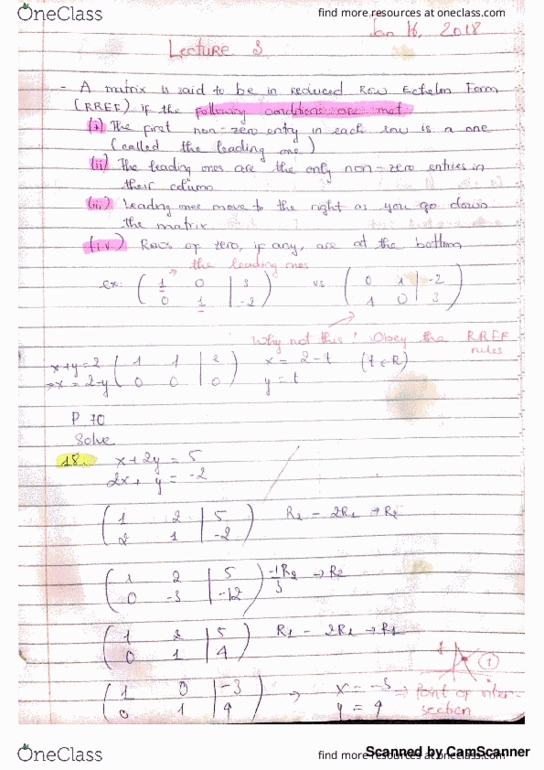 OneClass
find more resources at oneclass.com
Jan 16, 2018
Lecture 3
- A matrix is said to be in reduced Row Echelon Form
(RREF) if the following conditions are met
(i) The first non-zero entry in each row is a one
(called the leading one)
(ii) The leading ones are the only non-zero entries in
their column
(iii) Leading ones move to the right as you go down
the matrix
(iv) Rows of zero, if any, are at the bottom
the leading ones
ex: ( 1 0 | 3 ) vs ( 0 1 | -2 )
( 0 1 | -2 ) ( 1 0 | 3 )
Why not this? Obey the RREF
rules
x+y=2 ( 1 1 | 2 ) x = 2-t (t∈R)
x = 2-y ( 0 0 | 0 ) y = t
P. 70
Solve
18. x+2y = 5
2x+y = -2
( 1 2 | 5 ) R2 - 2R1 → R2
( 2 1 | -2 )
( 1 2 | 5 ) -1/3 R2 → R2
( 0 -3 | -12 )
( 1 2 | 5 ) R1 - 2R2 → R1
( 0 1 | 4 )
( 1 0 | -3 ) → x = -3 → Point of inter-
( 0 1 | 4 ) y = 4 section
1
OneClass
find more resources at oneclass.com
Scanned by CamScanner